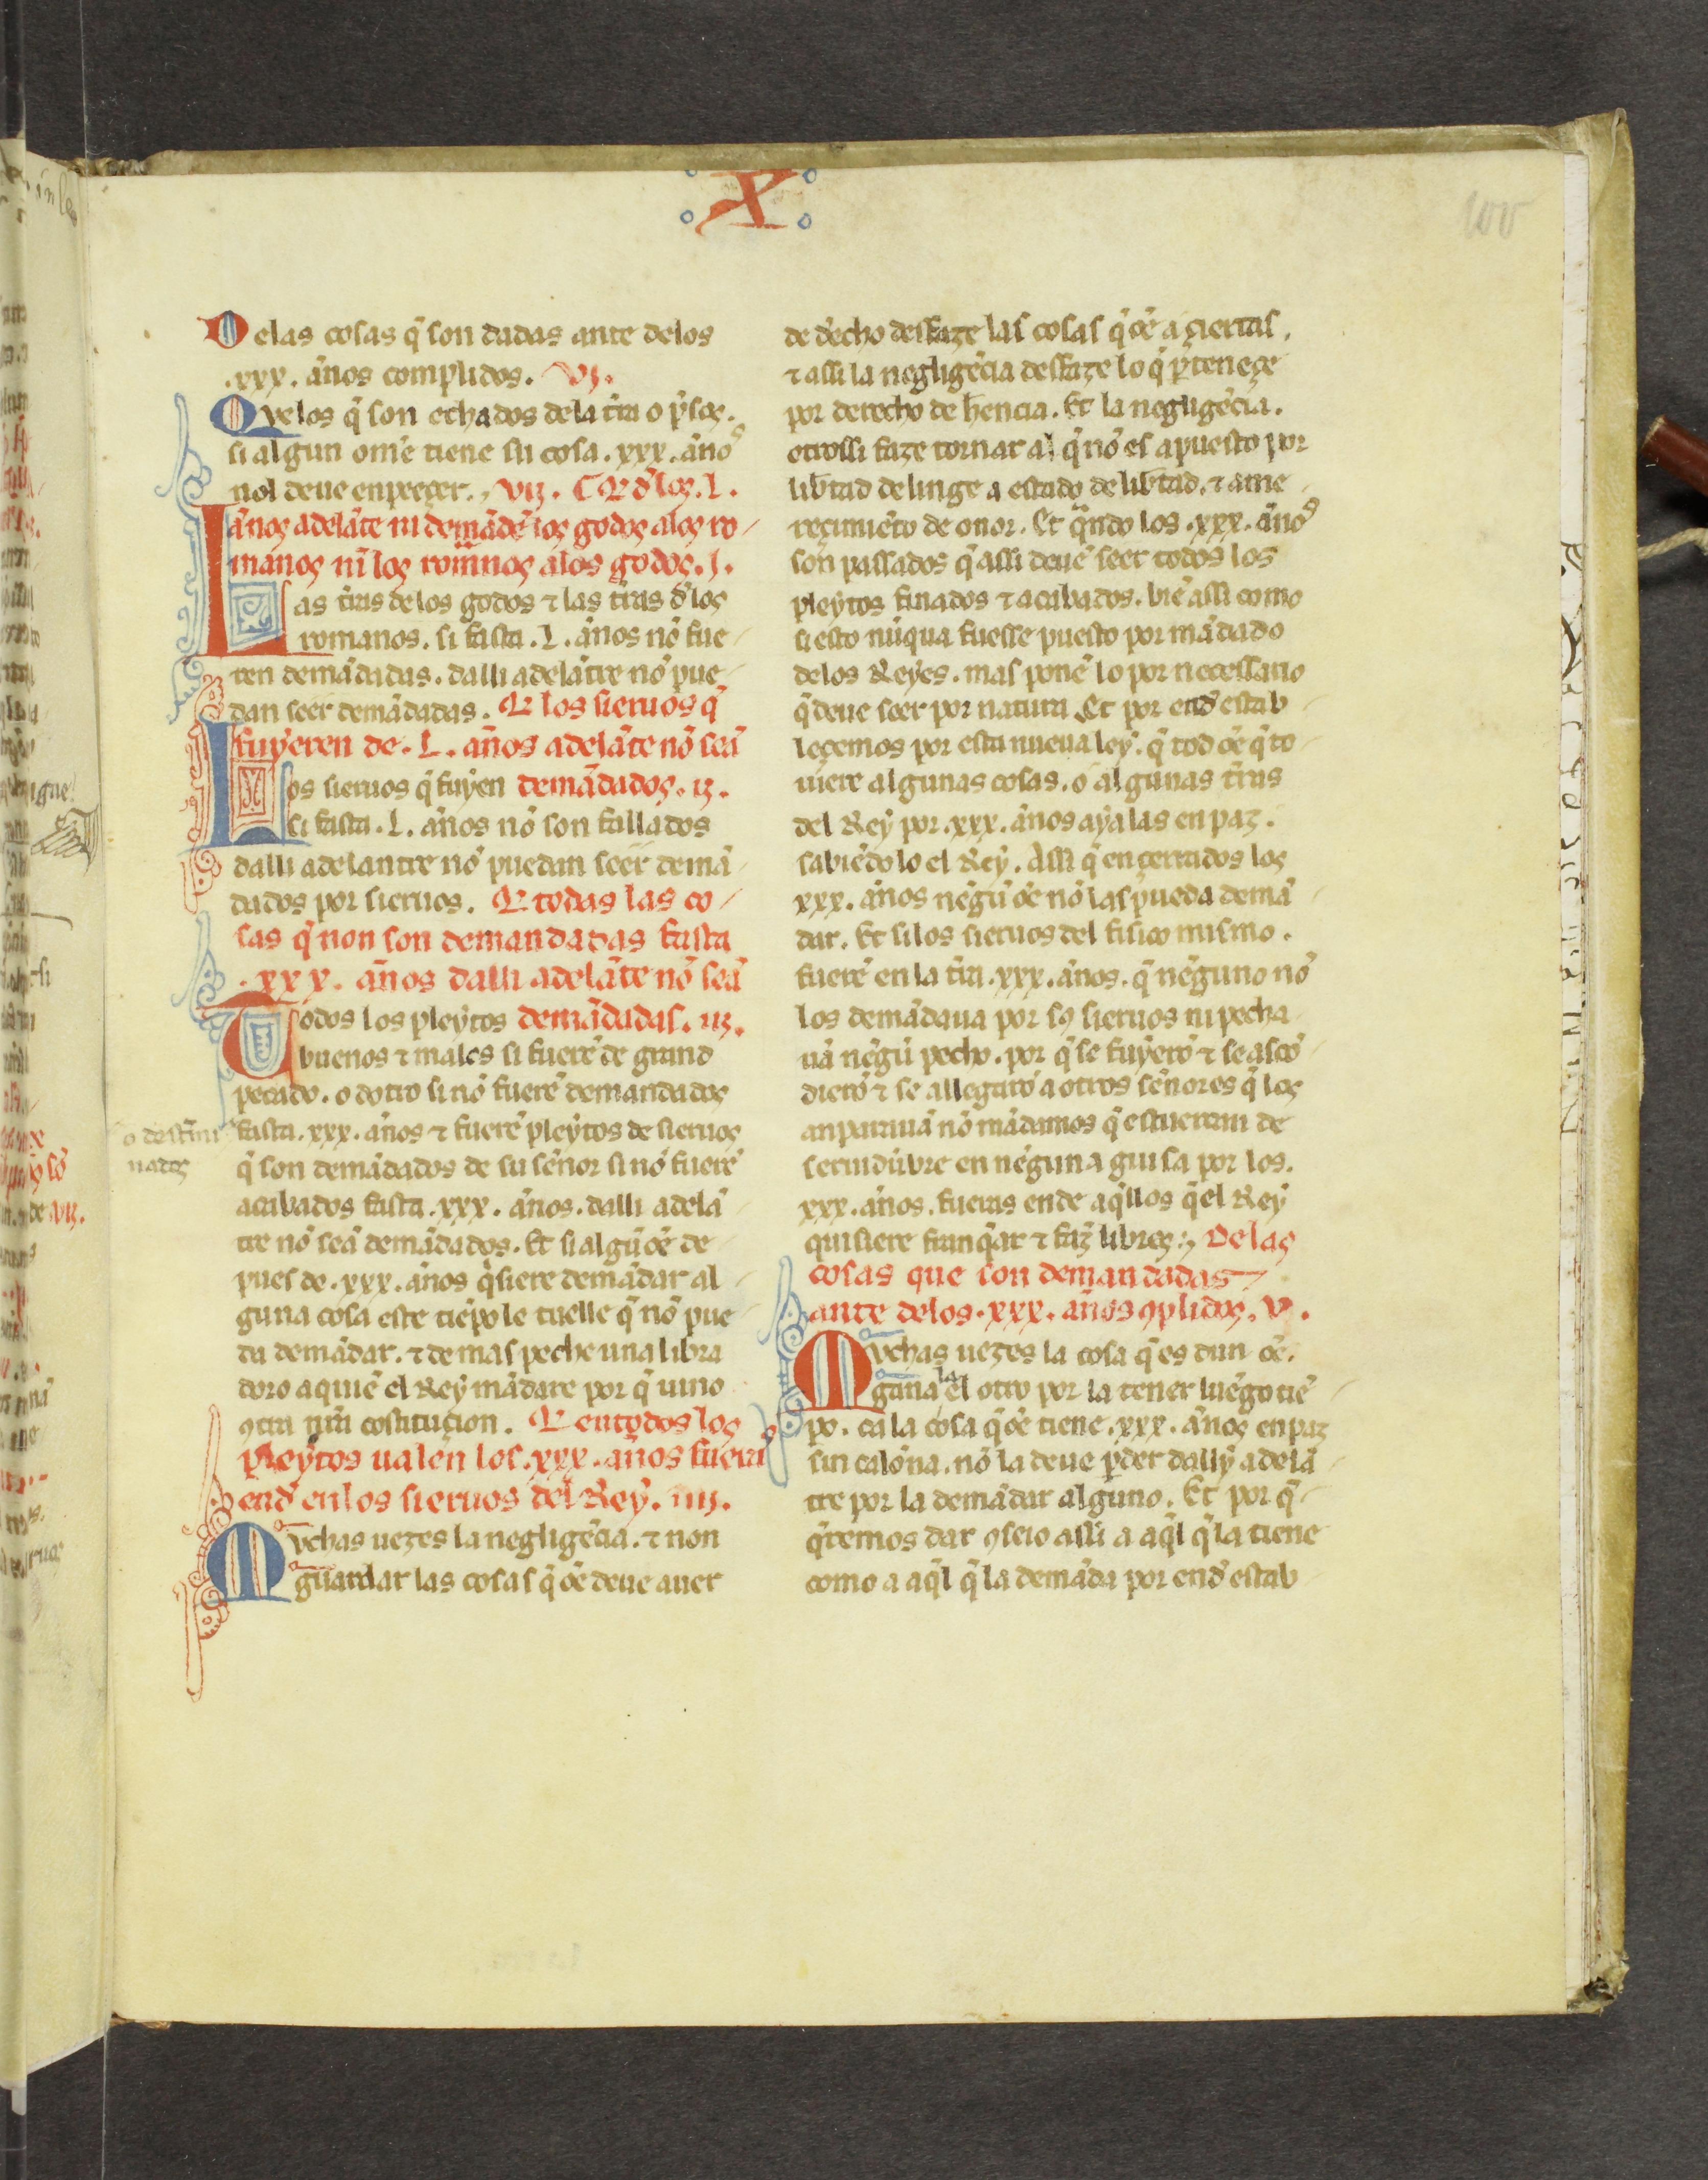 X
100
Delas cosas q̃ son dadas ante delos
.xxx. ãnos complidos. VI.
Qvelos q̃ son echados dela tr̃ra o p̃sos.
si algun om̃e tiene su cosa .xxx. ãnos
nol deue enpeeçer. VII. Q̃ dłos .L.
ãnos adelãte ni demãdẽ los godos alos ro
manos nĩ los romanos alos godos. I.
Las tr̃ras delos godos ⁊ las tr̃ras dłos
romanos. si fasta .L. ãnos nõ fue
ren demãdadas. dalli adelãtre nõ pue
dan seer demãdadas. Q̃ los sieruos q̃
fuyeren de .L. ãnos adelãte nõ seã
Los sieruos q̃ fuyen demãdados. II.
si fasta .L. ãnos nõ son fallados
dalli adelantre nõ puedan seer demã
dados por sieruos. Q̃ todas las co
sas q̃ non son demandadas fasta
.xxx. ãnos dalli adelãte nõ seã
Todos los pleytos demãdadas. III.
buenos ⁊ males si fuerẽ de grand
pecado. o dotro si nõ fuerẽ demandados
o destr̃mi
nados
fasta .xxx. ãnos ⁊ fuerẽ pleytos de sieruos
q̃ son demãdados de su sẽnor si nõ fuerẽ
acabados fasta .xxx. ãnos. dalli adelã
tre nõ seã demãdados. Et si algũ õe de
pues de .xxx. ãnos q̃siere demãdar al
guna cosa este tiẽpo le tuelle q̃ nõ pue
da demãdar. ⁊ demas peche una libra
doro a quiẽ el Rey mãdare por q̃ uino
ꝯtra nr̃a costituçion. Q̃ en todos los
pleytos ualen los .xxx. ãnos fuera
end̃ en los sieruos del Rey. IIII.
Mvchas uezes la negligẽcia. ⁊ non
guardar las cosas q̃ õe deue auer
de d̃echo desfaze las cosas q̃ õe a çiertas.
⁊ assi la negligẽcia desfaze lo q̃ ꝑteneçe
por derecho de h̃encia. Et la negligẽcia.
otrossi faze tornar al q̃ nõ es apuesto por
lib̃tad de linge a estado de lib̃tad. ⁊ a me
reçimiẽto de onor. Et q̃ndo los .xxx. ãnos
son passados q̃ assi deuẽ seer todos los
pleytos finados ⁊ acabados. biẽ assi como
si esto nũqua fuesse puesto por mãdado
delos Reyes. mas ponẽ lo por necessario
q̃ deue seer por natura. Et por end̃ estab
leçemos por esta nueua ley. q̃ tod õe q̃ to
uiere algunas cosas. o algunas tr̃ras
del Rey por .xxx. ãnos aya las en paz.
sabiẽdo lo el Rey. Assi q̃ en çerrados los
xxx. ãnos negũ õe nõ las pueda demã
dar. Et si los sieruos del fisico mismo.
fuerẽ en la tr̃ra .xxx. ãnos. q̃ neguno nõ
los demãdaua por sꝯ sieruos ni pecha
uã negũ pecho. por q̃ se fuyerõ ⁊ se ascõ
dierõ ⁊ se allegarõ a otros sẽnores q̃ los
anparauã nõ mãdamos q̃ estuercan de
seruidũbre en neguna guisa por los.
xxx. ãnos. fueras ende aq̃llos q̃ el Rey
quisiere franq̃ar ⁊ faz̃ libres. Delas
cosas que son demandadas
ante delos .xxx. ãnos ꝯplidos. V.
Mvchas uezes la cosa q̃ es dun õe.
gana la el otro por la tener luẽgo tiẽ
po. ca la cosa q̃ õe tiene .xxx. ãnos en paz
sin calõna. nõ la deue ꝑder dally adelã
tre por la demãdar alguno. Et por q̃
q̃remos dar ꝯseio assi a aq̃l q̃ la tiene
como a aq̃l q̃ la demãda por end̃ estab